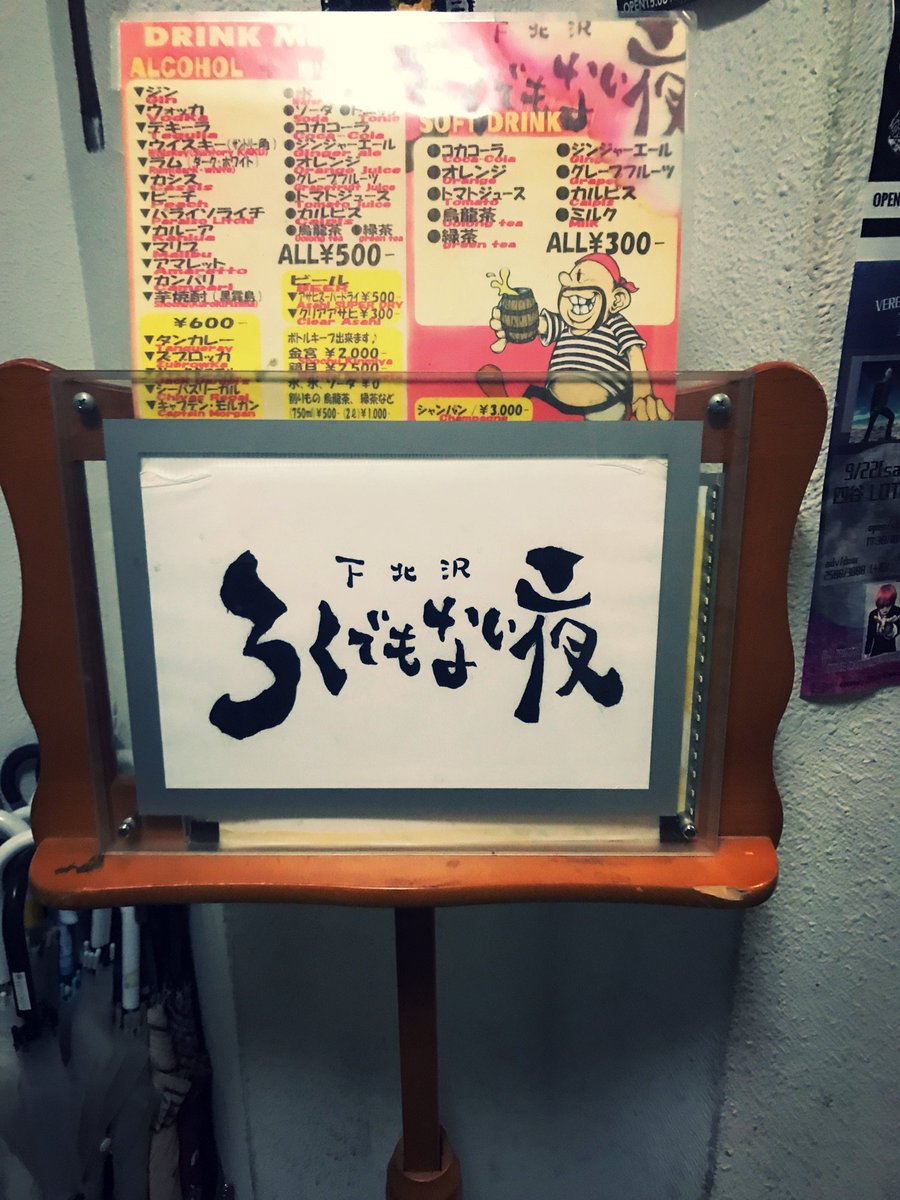 OPEN15:00
DRINK
ALCOHOL
▼ジン
Gin
▼ウォッカ
Vodka
▼テキーラ
Tequila
▼ウイスキー(サントリー角)
▼ラム(ダーク・ホワイト)
▼カシス
Cassis
▼ピーチ
Peach
▼パライソライチ
Paraiso Litchi
▼カルーア
Kahlua
▼マリブ
Malibu
▼アマレット
Amaretto
▼カンパリ
Campari
▼芋焼酎(黒霧島)
¥600-
▼タンカレー
Tanqueray
▼ズブロッカ
Zubrowka
▼シーバスリーガル
Chivas Regal
▼キャプテン・モルガン
Captain Morgan
●ソーダ ●トニック
Soda Tonic
●コカコーラ
Coca-Cola
●ジンジャーエール
Ginger ale
●オレンジ
Orange juice
●グレープフルーツ
Grapefruit juice
●トマトジュース
Tomato juice
●カルピス
Calpis
●烏龍茶 ●緑茶
Oolong tea green tea
ALL¥500-
ビール
BEER
▼アサヒスーパードライ¥500-
Asahi SUPER DRY
▼クリアアサヒ¥300-
Clear Asahi
ボトルキープ出来ます♪
金宮 ¥2,000-
鏡月 ¥2,500-
氷、水、ソーダ ¥0
割りもの 烏龍茶、緑茶など
(750ml)¥500- (2ℓ)¥1,000-
下北沢
ろくでもない夜
SOFT DRINK
●コカコーラ
Coca-Cola
●オレンジ
Orange
●トマトジュース
Tomato
●烏龍茶
Oolong tea
●緑茶
green tea
●ジンジャーエール
●グレープフルーツ
●カルピス
Calpis
●ミルク
Milk
ALL¥300-
シャンパン/¥3,000-
Champagne
下北沢
ろくでもない夜
OPEN
VERE
9/22(sa
四谷 LOT
adv/door